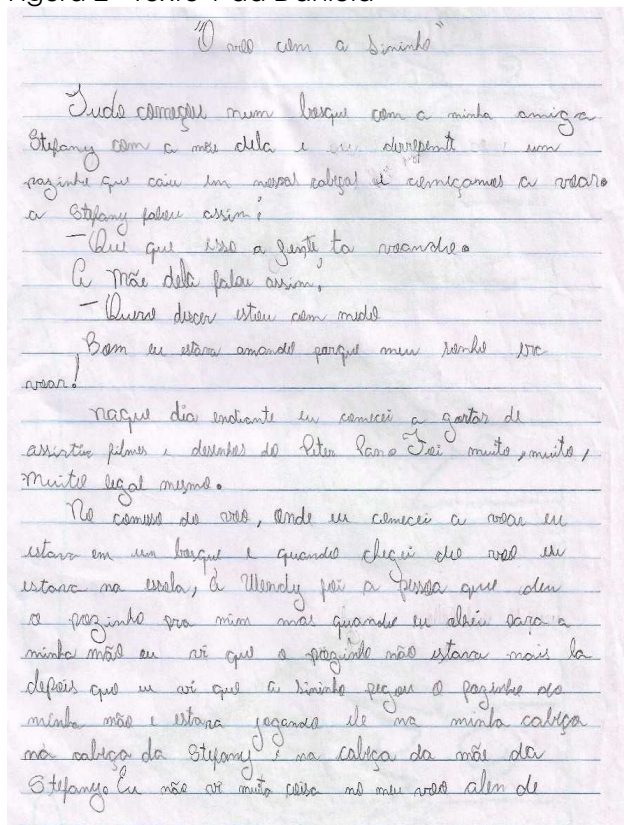 "O voo com a Sininho"
Tudo começou num bosque com a minha amiga
Stefany com a mãe dela e derrepente um
pozinho que caiu em nossas cabeças e começamos a voar.
a Stefany falou assim:
– Que que isso a gente ta voando.
A mãe dela falou assim:
– Quero descer estou com medo
Bom eu estava amando porque meu sonho era
voar!
naque dia endiante eu comecei a gostar de
assistir filmes e desenhos do Peter Pan. Foi muito, muito,
muito legal mesmo.
No comeso do voo, onde eu comecei a voar eu
estava em um bosque e quando cheguei do voo eu
estava na escola, a Wendy foi a pessoa que deu
o pozinho pra mim mas quando eu olhei para a
minha mão eu vi que o pozinho não estava mais la
depois que eu vi que a Sininho pegou o pozinho da
minha mão e estava jogando ele na minha cabeça
na cabeça da Stefany e na cabeça da mãe da
Stefany. Eu não vi muita coisa no meu voo alen de